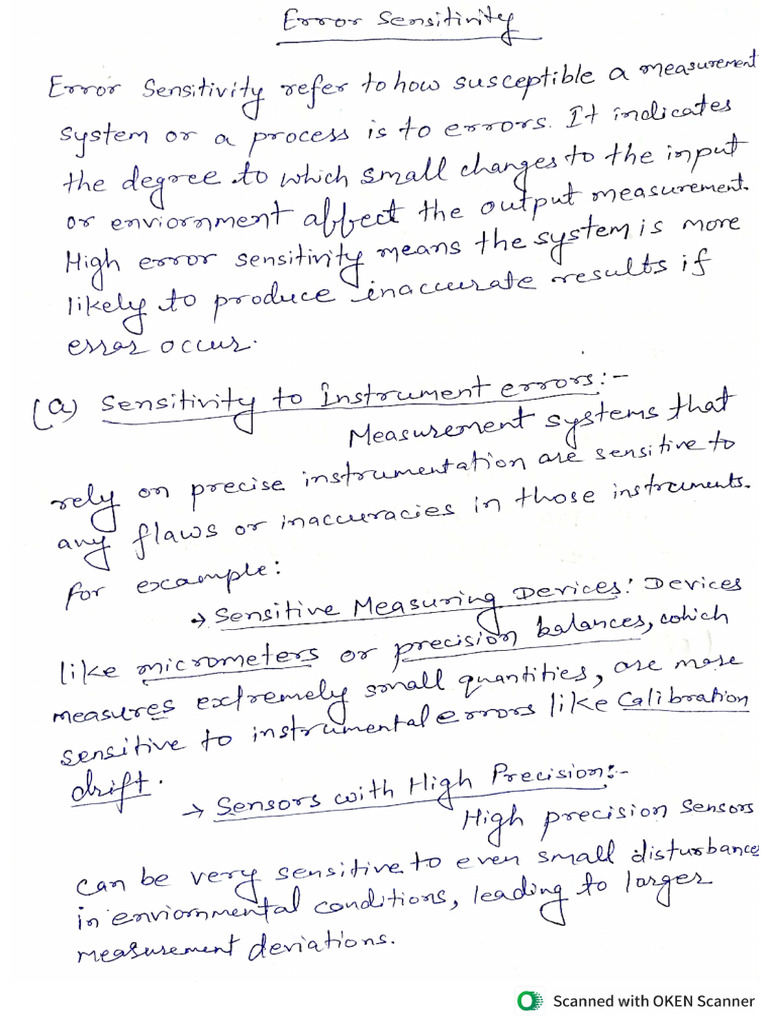 Error Sensitivity
Error Sensitivity refer to how susceptible a measurement
system or a process is to errors. It indicates
the degree to which small changes to the input
or enviornment affect the output measurement.
High error sensitivity means the system is more
likely to produce inaccurate results if
error occur.
(a) Sensitivity to Instrument errors:-
Measurement systems that
rely on precise instrumentation are sensitive to
any flaws or inaccuracies in those instruments.
for example:
→ Sensitive Measuring Devices: Devices
like micrometers or precision balances, which
measures extremely small quantities, are more
sensitive to instrumental errors like Calibration
drift.
→ Sensors with High Precision:-
High precision sensors
can be very sensitive to even small disturbance
in enviornmental conditions, leading to larger
measurement deviations.
Scanned with OKEN Scanner